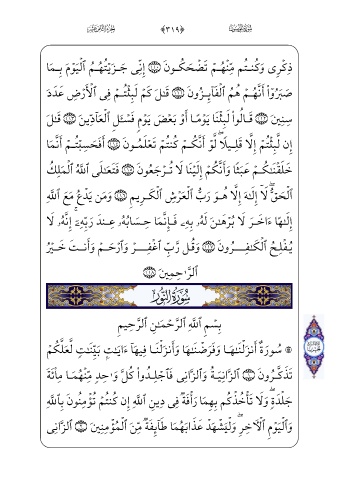 سُورَةُ المُؤْمِنُون ﴿٣١٩﴾ الجُزْءُ الثَّامِنَ عَشَرَ
ذِكْرِى وَكُنتُم مِّنْهُمْ تَضْحَكُونَ ۝ إِنِّى جَزَيْتُهُمُ ٱلْيَوْمَ بِمَا
صَبَرُوٓا۟ أَنَّهُمْ هُمُ ٱلْفَآئِزُونَ ۝ قَٰلَ كَمْ لَبِثْتُمْ فِى ٱلْأَرْضِ عَدَدَ
سِنِينَ ۝ قَالُوا۟ لَبِثْنَا يَوْمًا أَوْ بَعْضَ يَوْمٍ فَسْـَٔلِ ٱلْعَآدِّينَ ۝ قَٰلَ
إِن لَّبِثْتُمْ إِلَّا قَلِيلًا ۖ لَّوْ أَنَّكُمْ كُنتُمْ تَعْلَمُونَ ۝ أَفَحَسِبْتُمْ أَنَّمَا
خَلَقْنَٰكُمْ عَبَثًا وَأَنَّكُمْ إِلَيْنَا لَا تُرْجَعُونَ ۝ فَتَعَٰلَى ٱللَّهُ ٱلْمَلِكُ
ٱلْحَقُّ ۖ لَآ إِلَٰهَ إِلَّا هُوَ رَبُّ ٱلْعَرْشِ ٱلْكَرِيمِ ۝ وَمَن يَدْعُ مَعَ ٱللَّهِ
إِلَٰهًا ءَاخَرَ لَا بُرْهَٰنَ لَهُۥ بِهِۦ فَإِنَّمَا حِسَابُهُۥ عِندَ رَبِّهِۦٓ ۚ إِنَّهُۥ لَا
يُفْلِحُ ٱلْكَٰفِرُونَ ۝ وَقُل رَّبِّ ٱغْفِرْ وَٱرْحَمْ وَأَنتَ خَيْرُ
ٱلرَّٰحِمِينَ ۝
سُورَةُ النُّورِ
بِسْمِ ٱللَّهِ ٱلرَّحْمَٰنِ ٱلرَّحِيمِ
۞ سُورَةٌ أَنزَلْنَٰهَا وَفَرَضْنَٰهَا وَأَنزَلْنَا فِيهَآ ءَايَٰتٍۭ بَيِّنَٰتٍ لَّعَلَّكُمْ
تَذَكَّرُونَ ۝ ٱلزَّانِيَةُ وَٱلزَّانِى فَٱجْلِدُوا۟ كُلَّ وَٰحِدٍ مِّنْهُمَا مِا۟ئَةَ
جَلْدَةٍ ۖ وَلَا تَأْخُذْكُم بِهِمَا رَأْفَةٌ فِى دِينِ ٱللَّهِ إِن كُنتُمْ تُؤْمِنُونَ بِٱللَّهِ
وَٱلْيَوْمِ ٱلْءَاخِرِ ۖ وَلْيَشْهَدْ عَذَابَهُمَا طَآئِفَةٌ مِّنَ ٱلْمُؤْمِنِينَ ۝ ٱلزَّانِى